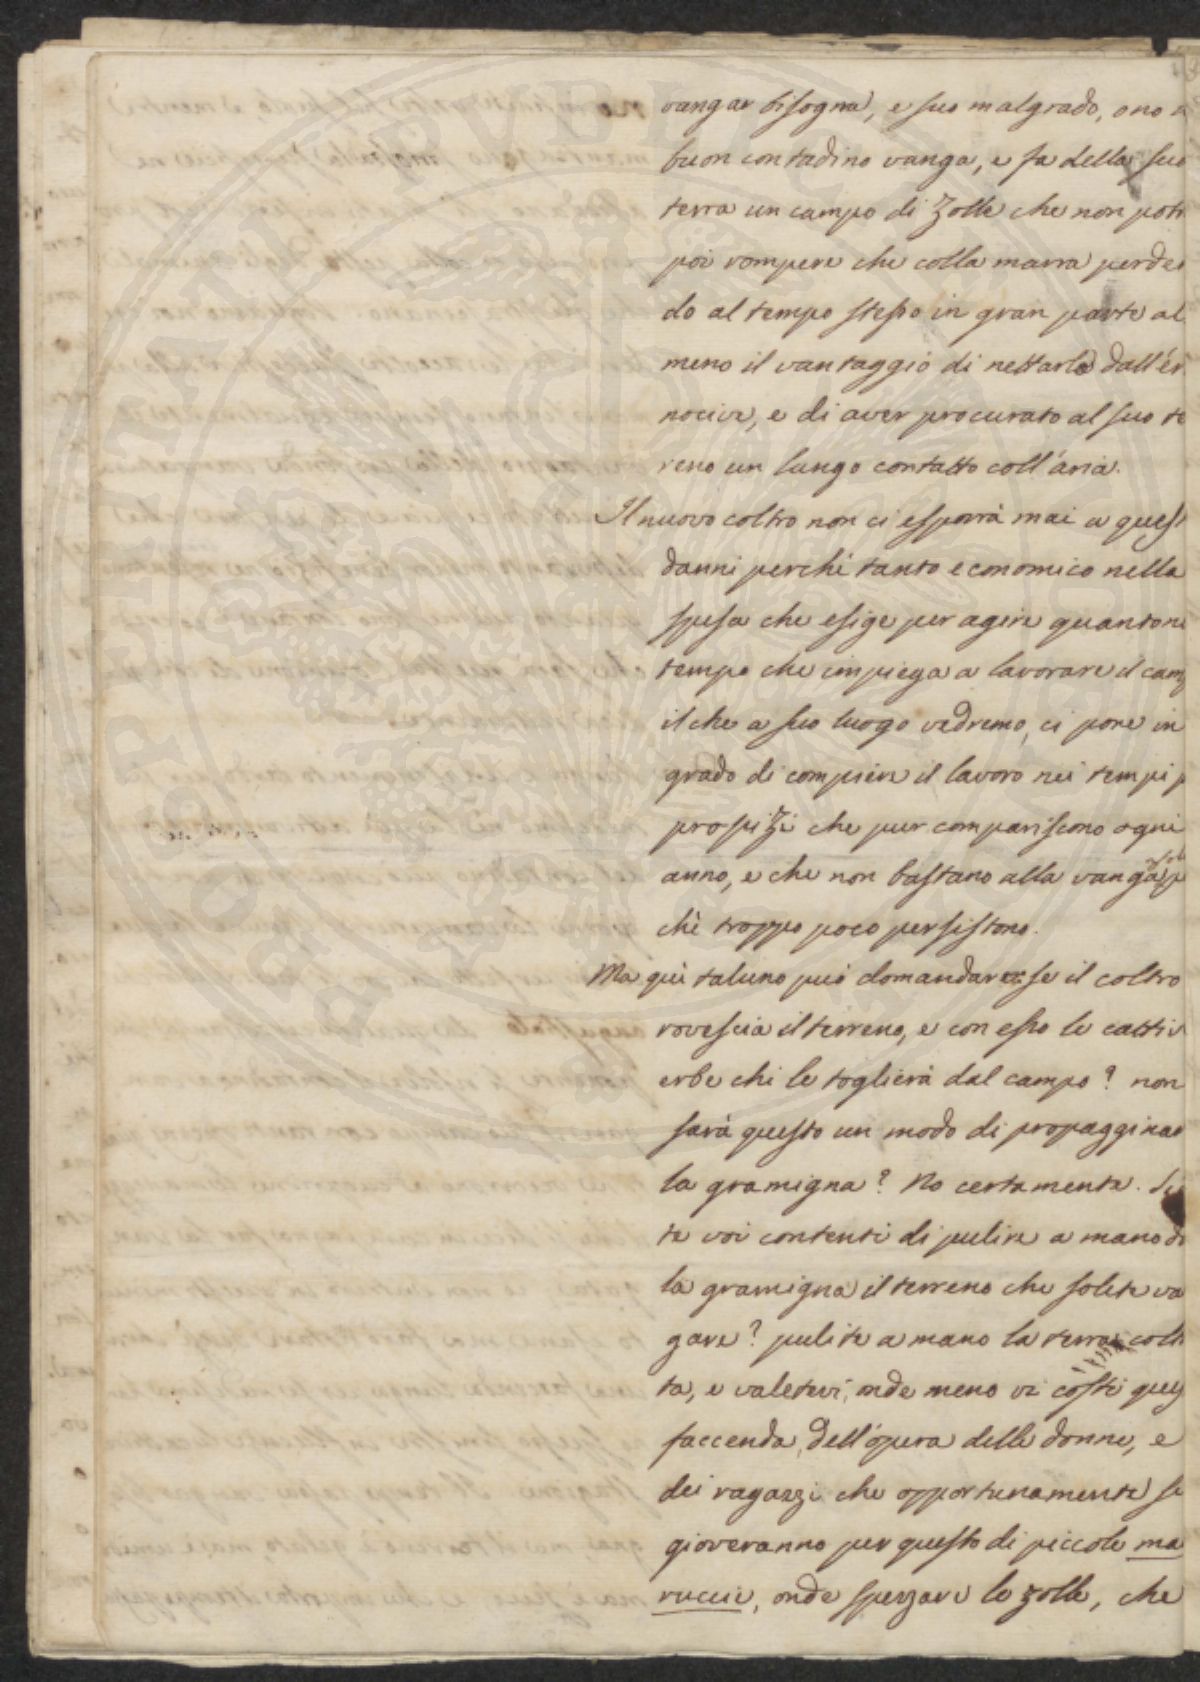 vangar bisogna, e suo malgrado, o no
buon contadino vanga, e fa della sua
terra un campo di zolle che non potr
poi rompere che colla marra perden
do al tempo stesso in gran parte al
meno il vantaggio di nettarla dall'er
nocive, e di aver procurato al suo te
reno un lungo contatto coll'aria.
Il nuovo coltro non ci esporrà mai a quest
danni perchè tanto economico nella
spesa che esige per agire quanto ne
tempo che impiega a lavorare il camp
il che a suo luogo vedremo, ci pone in
grado di compiere il lavoro nei tempi p
propizi che pur compariscono ogni
anno, e che non bastano alla vanga p
chè troppo poco persistono.
Ma quì taluno può domandare se il coltro
rovescia il terreno, e con esso le cattiv
erbe chi le toglierà dal campo? non
sarà questo un modo di propagginar
la gramigna? No certamente. Sie
te voi contenti di pulire a mano da
la gramigna il terreno che solete va
gare? pulite a mano la terra colt
ta, e valetevi, onde meno vi costi ques
faccenda, dell'opera delle donne, e
dei ragazzi che opportunamente si
gioveranno per questo di piccole ma
ruccie, onde spezzare le zolle, che